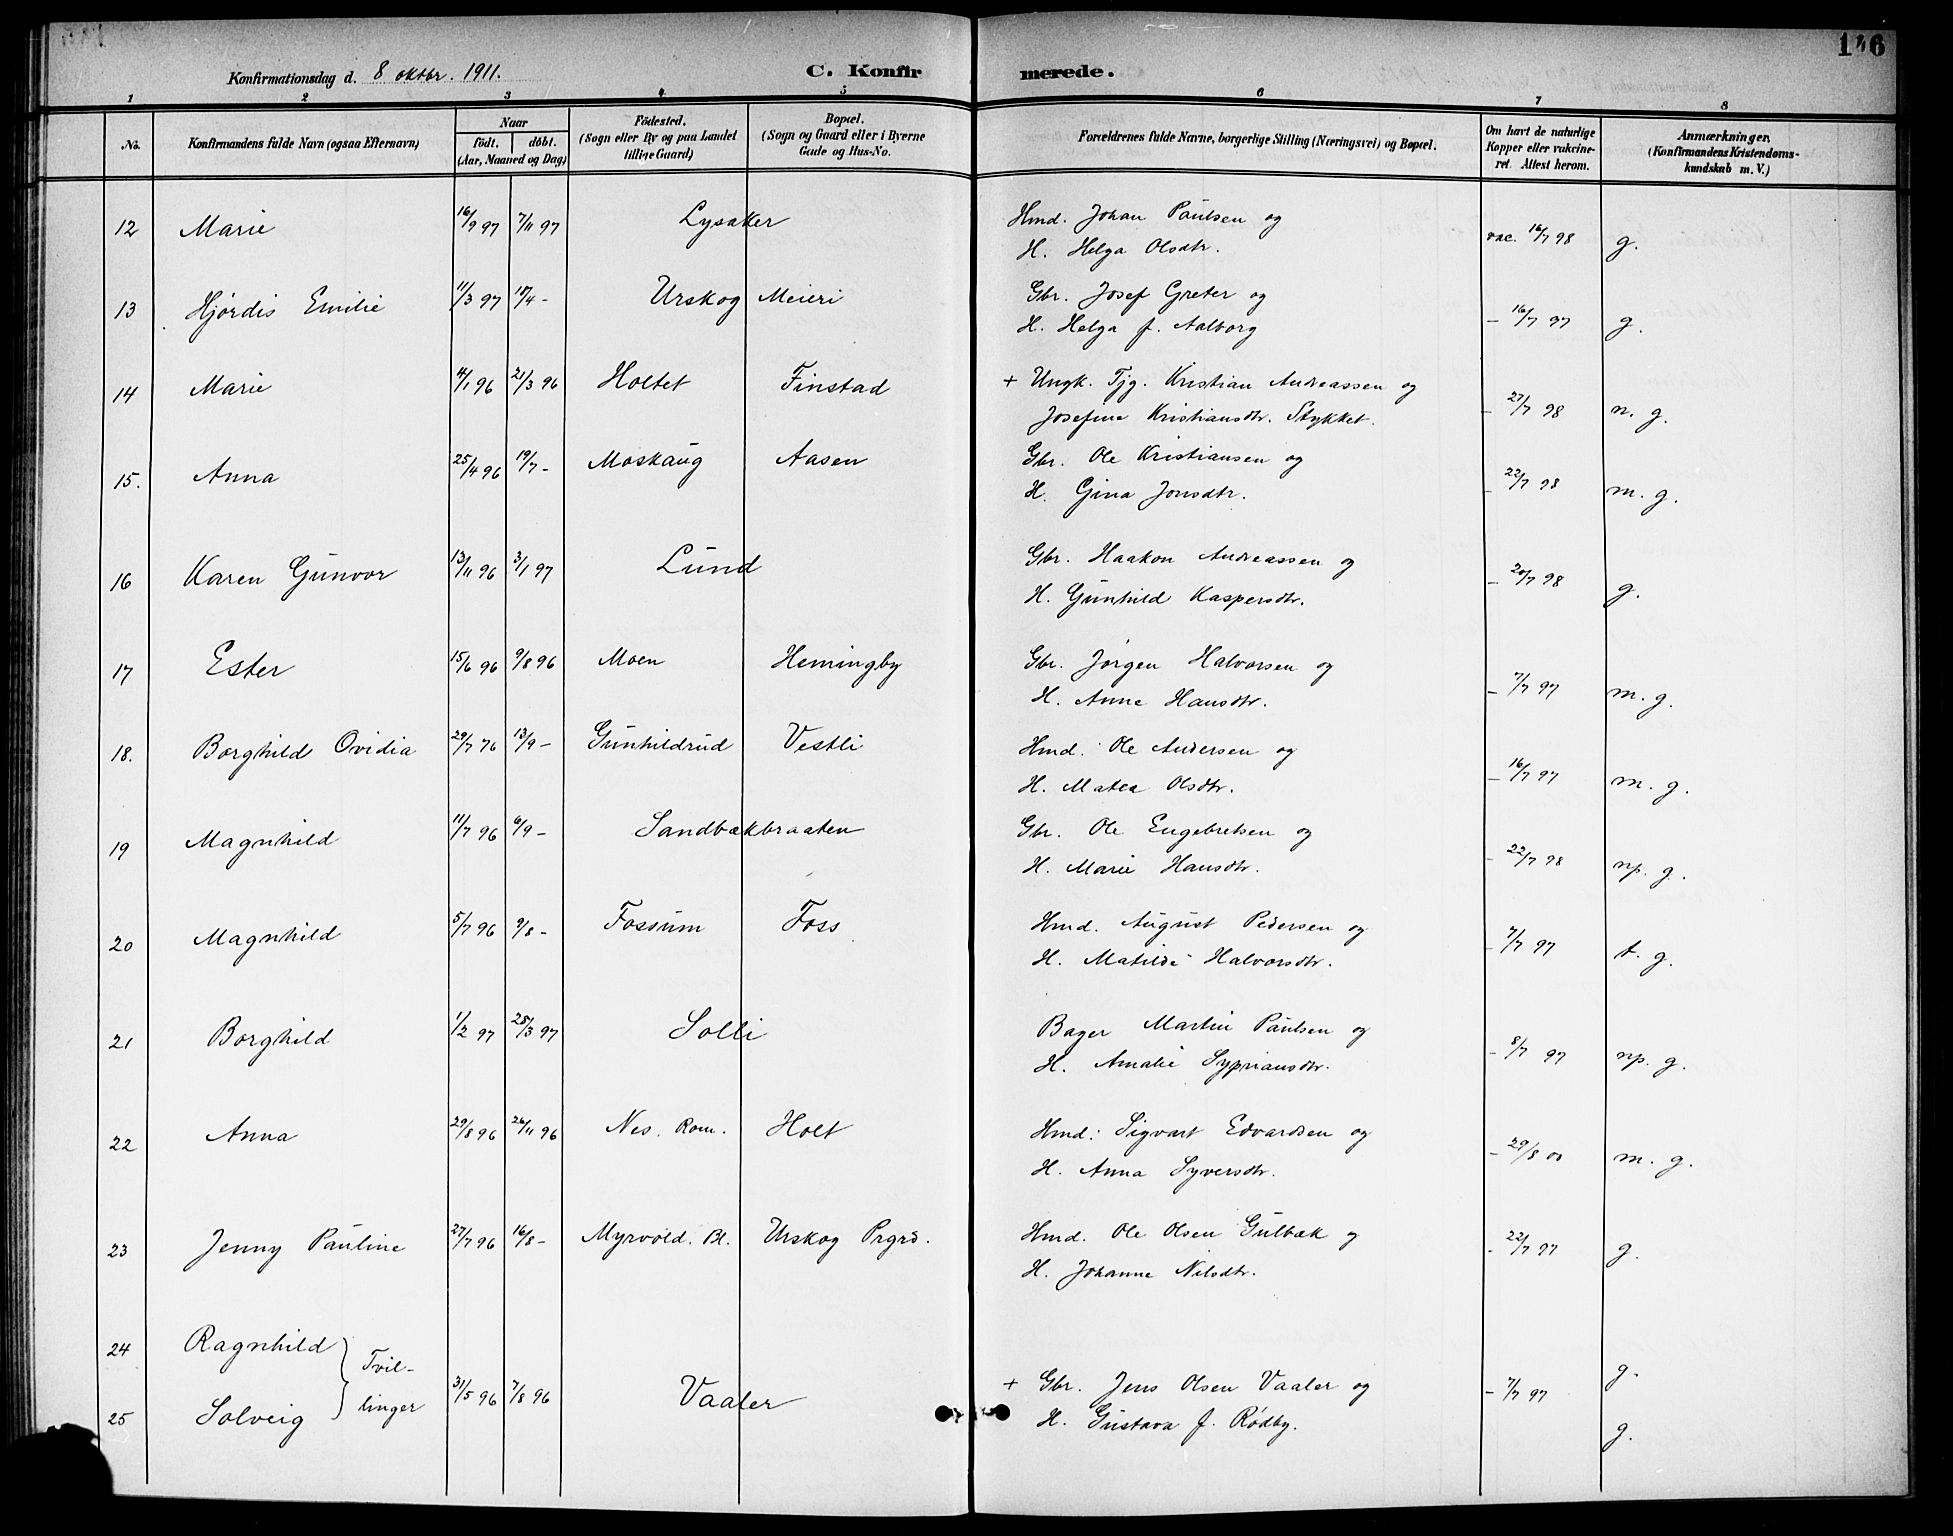 Konfirmationsdag d. 8 oktbr. 1911. C. Konfirmerede.
1 2 3 4 5 6 7 8
No. Konfirmandens fulde Navn (ogsaa Efternavn) Naar født. døbt. (Aar, Maaned og Dag) Fødested. (Sogn eller By og paa Landet tillige Gaard) Bopæl. (Sogn og Gaard eller i Byerne Gade og Hus-No. Forældrenes fulde Navne, borgerlige Stilling (Næringsvei) og Bopæl. Om havt de naturlige Kopper eller vakcineret. Attest herom. Anmærkninger, (Konfirmandens Kristendomskundskab m. V.)
12 Marie 16/9 97 7/11 97 Lysaker Hmd. Johan Paulsen og vac. 16/7 98 g.
H. Helga Olsdtr.
13 Hjørdis Emilie 11/3 97 18/4 - Urskog Meieri Gbr. Josef Greter og - 16/7 97 g.
H. Helga f. Aalborg
14 Marie 11/1 96 21/3 96 Holtet Finstad + Ungk. Tjg. Kristian Andreassen og - 27/7 98 n. g.
Josefine Kristiansdtr. Stykket.
15. Anna 25/4 96 19/7 - Moskaug Aasen Gbr. Ole Kristiansen og - 22/7 98 m. g.
H. Gina Jonsdtr.
16 Karen Gunvor 13/11 96 3/1 97 Lund Gbr. Haakon Andreassen og - 20/7 98 g.
H. Gunhild Kaspersdtr.
17 Ester 15/6 96 9/8 96 Moen Hemingby Gbr. Jørgen Halvorsen og - 7/7 97 m. g.
H. Anne Hansdtr.
18. Borghild Ovidia 29/7 76 13/9 - Gunhildrud Vestli Hmd. Ole Andersen og - 16/7 97 m. g.
H. Matea Olsdtr.
19 Magnhild 11/7 96 6/9 - Sandbækbraaten Gbr. Ole Engebretsen og - 22/7 98 np. g.
H. Marie Hansdtr.
20 Magnhild 5/7 96 9/8 - Fossum Foss Hmd. August Pedersen og - 7/7 97 t. g.
H. Matilde Halvorsdtr.
21 Borghild 1/2 97 28/3 97 Solli Bager Martin Paulsen og - 8/7 97 np. g.
H. Amalie Sypriansdtr.
22 Anna 29/8 96 26/11 96 Nes. Rom. Holt Hmd. Sigvart Edvardsen og - 29/8 00 m. g.
H. Anna Syversdtr.
23 Jenny Pauline 27/7 96 16/8 - Myrvold. Bl. Urskog Prgrd. Hmd. Ole Olsen Gulbæk og - 22/7 97 g.
H. Johanne Nilsdtr.
24 Ragnhild } Tvil- g.
31/5 96 7/8 96 Vaaler + Gbr. Jens Olsen Vaaler og - 7/7 97
25 Solveig } linger H. Gustava f. Rødby. g.